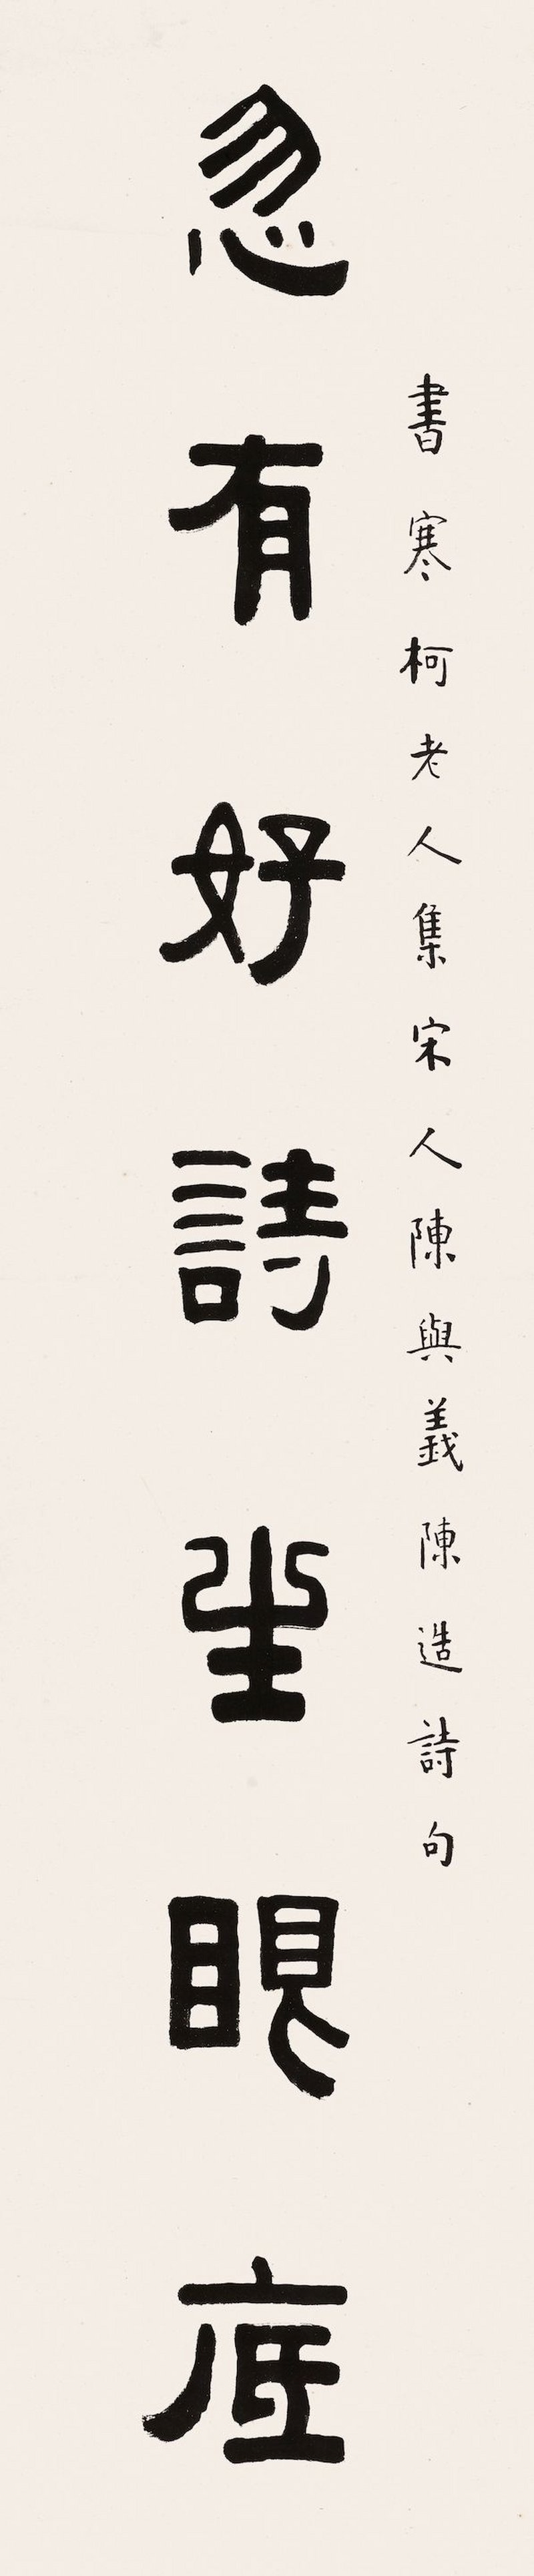 書寒柯老人集宋人陳與義陳造詩句
忽有好詩生眼底